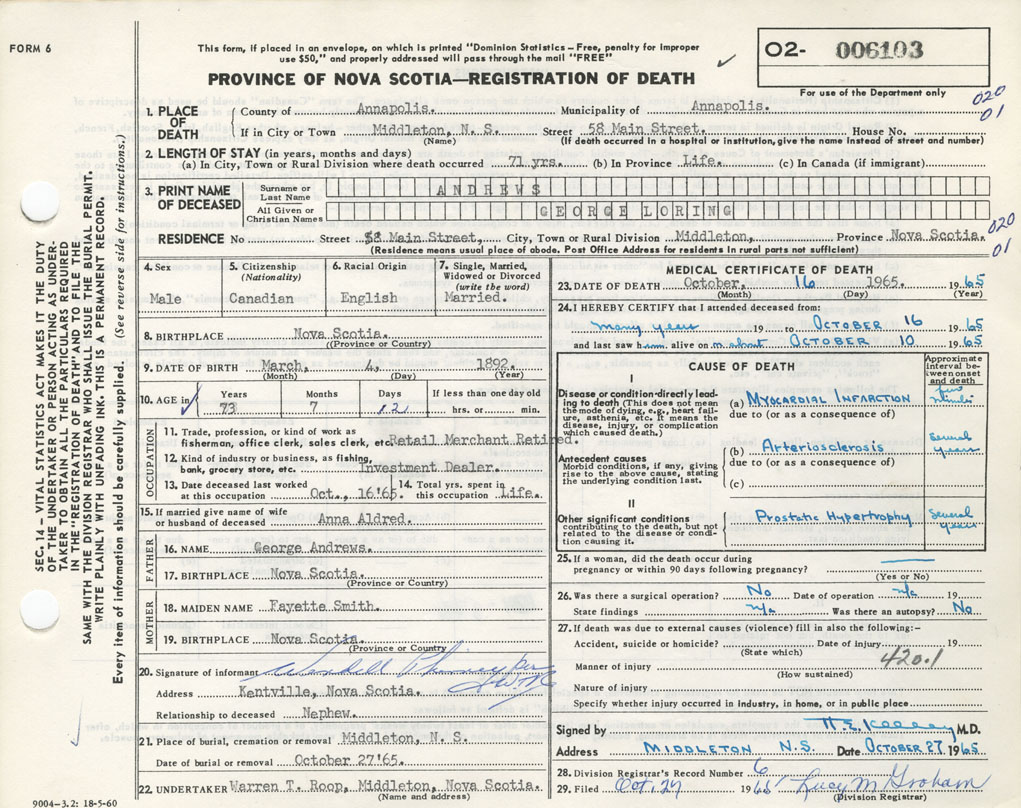 FORM 6
This form, if placed in an envelope, on which is printed "Dominion Statistics – Free, penalty for improper
use $50," and properly addressed will pass through the mail "FREE"
PROVINCE OF NOVA SCOTIA—REGISTRATION OF DEATH
02- 006103
For use of the Department only
020
01
1. PLACE OF DEATH
County of Annapolis. Municipality of Annapolis.
If in City or Town Middleton, N. S. Street 58 Main Street. House No.
(Name) (If death occurred in a hospital or institution, give the name instead of street and number)
2. LENGTH OF STAY (in years, months and days)
(a) In City, Town or Rural Division where death occurred 71 yrs. (b) In Province Life. (c) In Canada (if immigrant)
3. PRINT NAME OF DECEASED
Surname or Last Name ANDREWS
All Given or Christian Names GEORGE LORING
RESIDENCE No Street 58 Main Street, City, Town or Rural Division Middleton, Province Nova Scotia.
(Residence means usual place of abode. Post Office Address for residents in rural parts not sufficient)
020
01
4. Sex
Male
5. Citizenship
(Nationality)
Canadian
6. Racial Origin
English
7. Single, Married, Widowed or Divorced
(write the word)
Married.
8. BIRTHPLACE Nova Scotia.
(Province or Country)
9. DATE OF BIRTH March, 4, 1892.
(Month) (Day) (Year)
10. AGE in Years Months Days If less than one day old
73 7 12 hrs. or min.
OCCUPATION
11. Trade, profession, or kind of work as
fisherman, office clerk, sales clerk, etc. Retail Merchant Retired.
12. Kind of industry or business, as fishing,
bank, grocery store, etc. Investment Dealer.
13. Date deceased last worked
at this occupation Oct., 16'65.
14. Total yrs. spent in
this occupation Life.
15. If married give name of wife
or husband of deceased Anna Aldred.
FATHER
16. NAME George Andrews.
17. BIRTHPLACE Nova Scotia.
(Province or Country)
MOTHER
18. MAIDEN NAME Fayette Smith.
19. BIRTHPLACE Nova Scotia.
(Province or Country)
20. Signature of informant Wendell
Address Kentville, Nova Scotia.
Relationship to deceased Nephew.
21. Place of burial, cremation or removal Middleton, N. S.
Date of burial or removal October 27'65.
22. UNDERTAKER Warren T. Roop, Middleton, Nova Scotia.
(Name and address)
MEDICAL CERTIFICATE OF DEATH
23. DATE OF DEATH October, 16 1965. 19 65
(Month) (Day) (Year)
24. I HEREBY CERTIFY that I attended deceased from:
many years 19 to OCTOBER 16 1965
and last saw him alive on about OCTOBER 10 1965
CAUSE OF DEATH
Approximate interval between onset and death
I
Disease or condition directly leading to death (This does not mean the mode of dying, e.g., heart failure, asthenia, etc. It means the disease, injury, or complication which caused death.)
(a) MYOCARDIAL INFARCTION
due to (or as a consequence of)
Antecedent causes
Morbid conditions, if any, giving rise to the above cause, stating the underlying condition last.
(b) Arteriosclerosis Several years
due to (or as a consequence of)
(c)
II
Other significant conditions
contributing to the death, but not related to the disease or condition causing it.
Prostatic Hypertrophy Several years
25. If a woman, did the death occur during
pregnancy or within 90 days following pregnancy?
(Yes or No)
26. Was there a surgical operation? No Date of operation n/a 19
State findings n/a Was there an autopsy? No
27. If death was due to external causes (violence) fill in also the following:–
Accident, suicide or homicide? Date of injury 19
(State which)
420.1
Manner of injury
(How sustained)
Nature of injury
Specify whether injury occurred in industry, in home, or in public place
Signed by M.D.
Address MIDDLETON N.S. Date OCTOBER 27 1965
28. Division Registrar's Record Number 6
29. Filed Oct. 27 19 Lucy M Graham
(Division Registrar)
SEC. 14 – VITAL STATISTICS ACT MAKES IT THE DUTY
OF THE UNDERTAKER OR PERSON ACTING AS UNDERTAKER
TO OBTAIN ALL THE PARTICULARS REQUIRED
IN THE "REGISTRATION OF DEATH" AND TO FILE THE
SAME WITH THE DIVISION REGISTRAR WHO SHALL ISSUE THE BURIAL PERMIT.
WRITE PLAINLY WITH UNFADING INK. THIS IS A PERMANENT RECORD.
Every item of information should be carefully supplied. (See reverse side for instructions.)
9004-3.2: 18-5-60